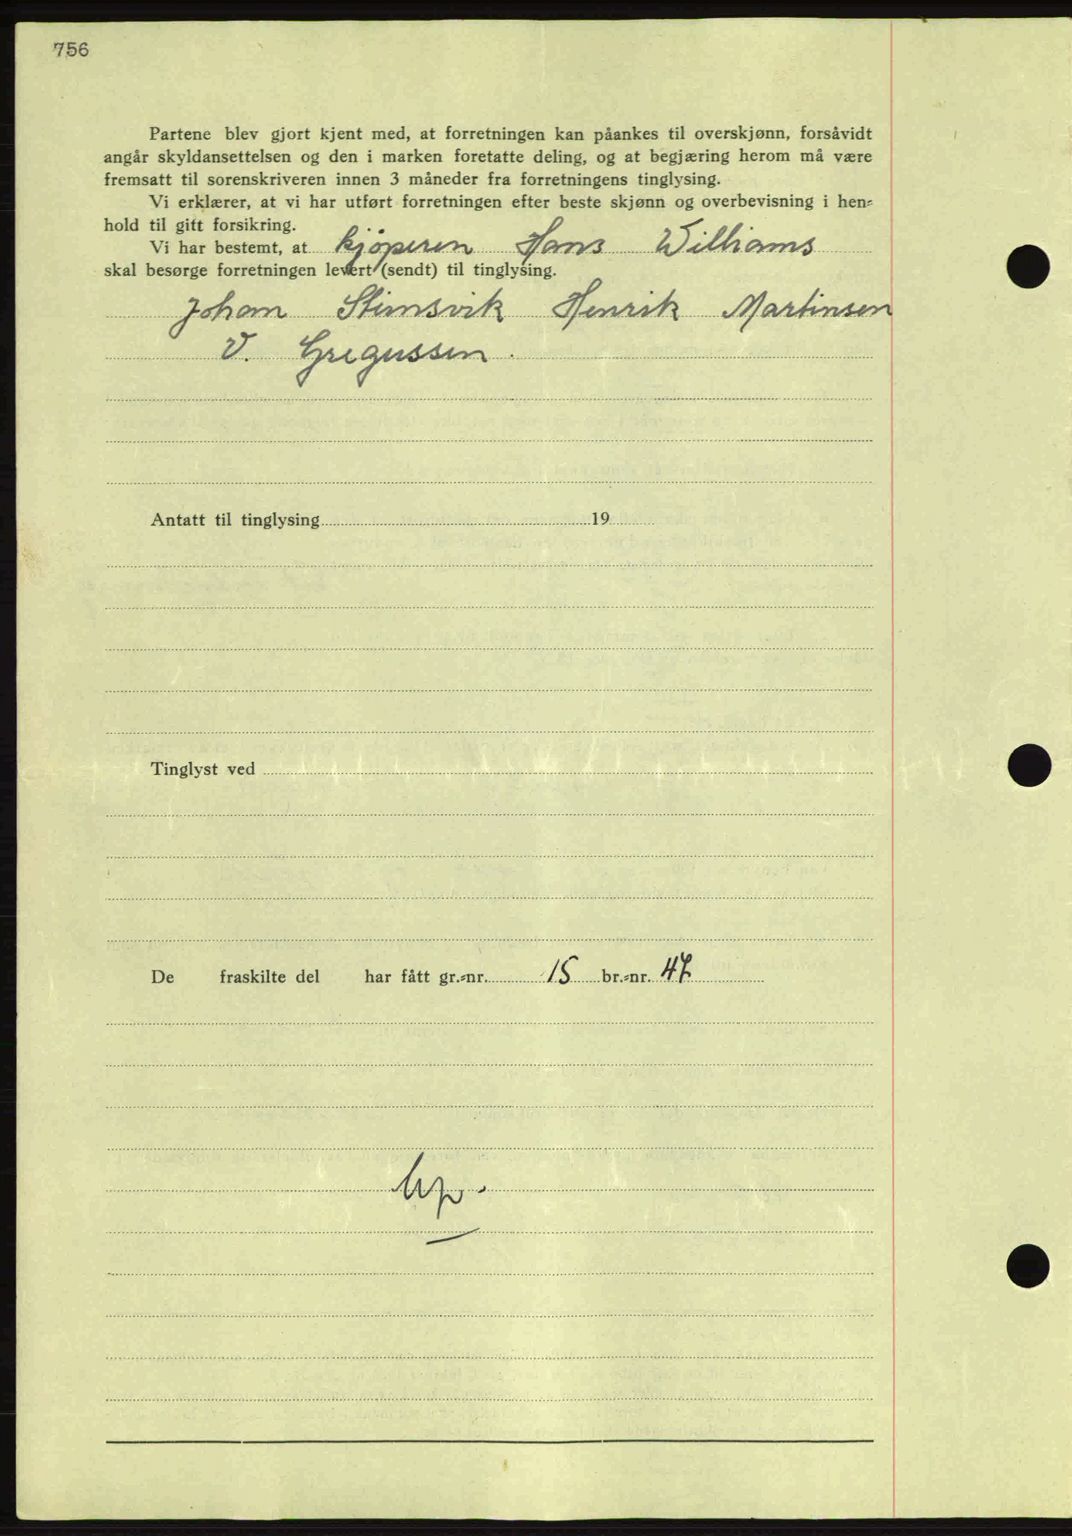 756
Partene blev gjort kjent med, at forretningen kan påankes til overskjønn, forsåvidt
angår skyldansettelsen og den i marken foretatte deling, og at begjæring herom må være
fremsatt til sorenskriveren innen 3 måneder fra forretningens tinglysing.
Vi erklærer, at vi har utført forretningen efter beste skjønn og overbevisning i hen-
hold til gitt forsikring.
Vi har bestemt, at kjøperen Hans Williams
skal besørge forretningen levert (sendt) til tinglysing.
Johan Stimsvik Henrik Martinsen
V. Gregussen.
Antatt til tinglysing 19
Tinglyst ved
De fraskilte del har fått gr.-nr. 15 br.-nr. 47